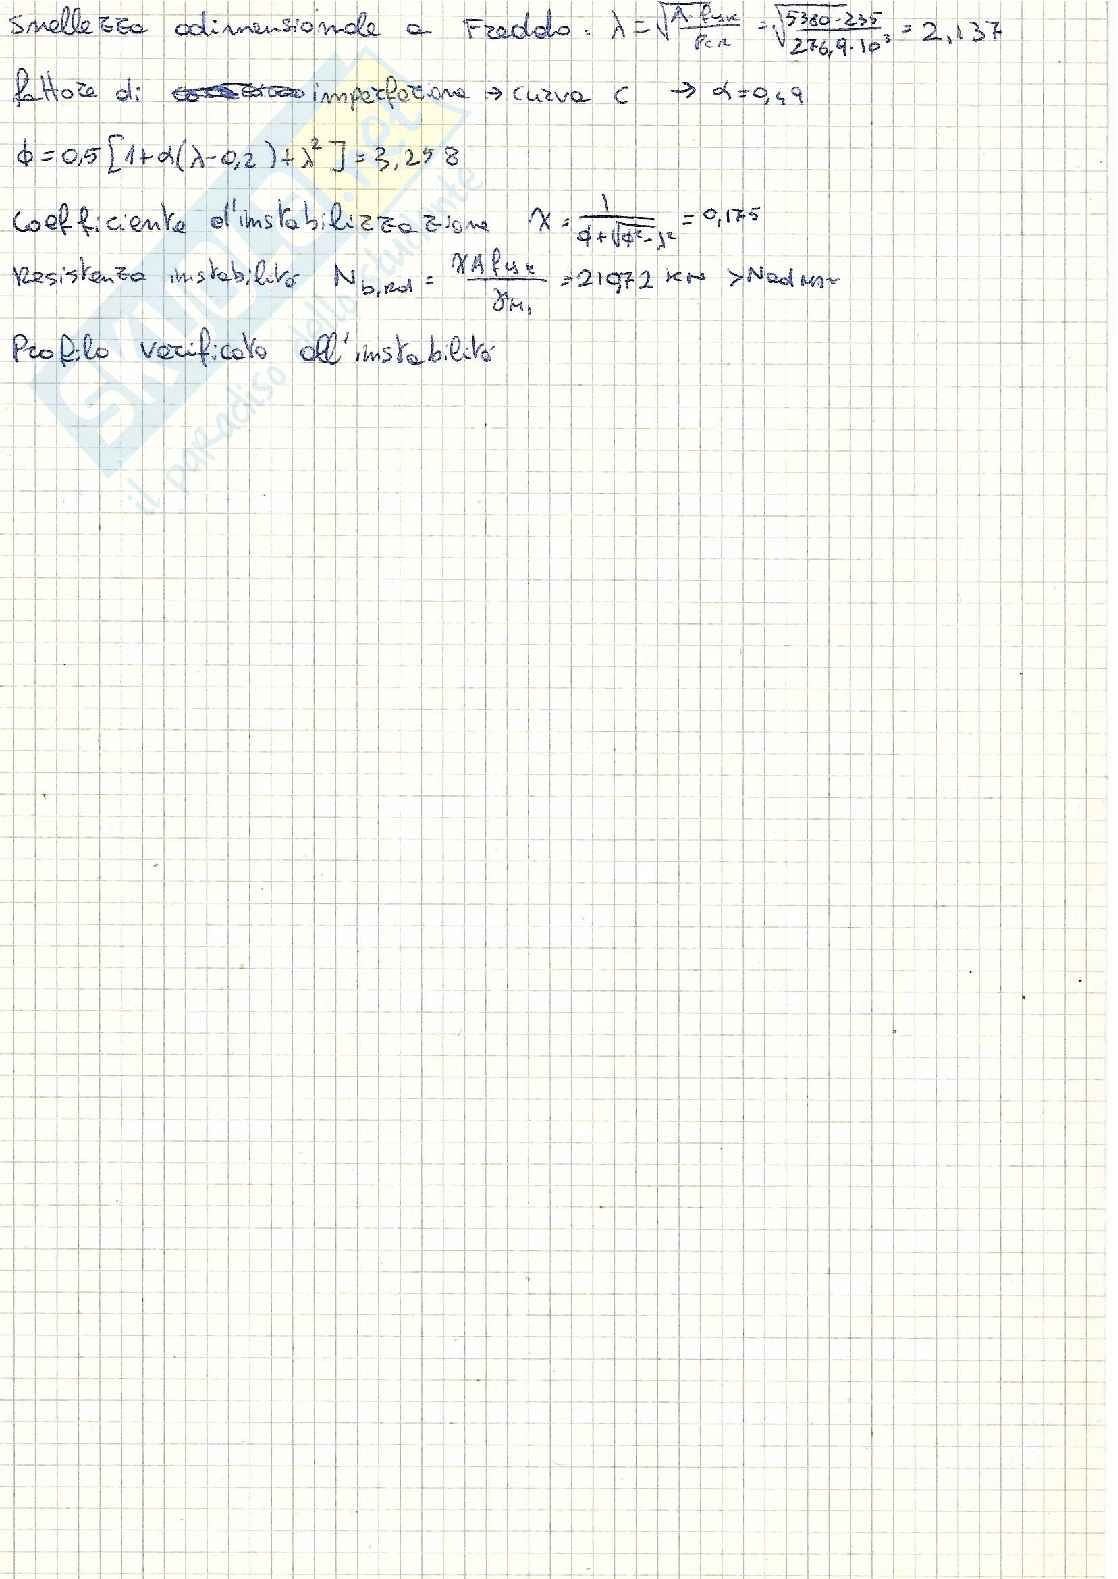 Snellezza adimensionale a Freddo: λ = √(A·fyk/Pcr) = √(5380·235/276,9·10³) = 2,137
fattore di imperfezione → curva c → α=0,49
ϕ = 0,5 [1+α(λ-0,2)+λ²] = 3,258
Coefficiente d'instabilizzazione χ = 1/(ϕ+√ϕ²-λ²) = 0,175
Resistenza instabilità Nb,Rd = χ A fyk/γM1 = 21972 KN > Ned
Profilo verificato all'instabilità
SKUOLA.net
il paradiso dello studente